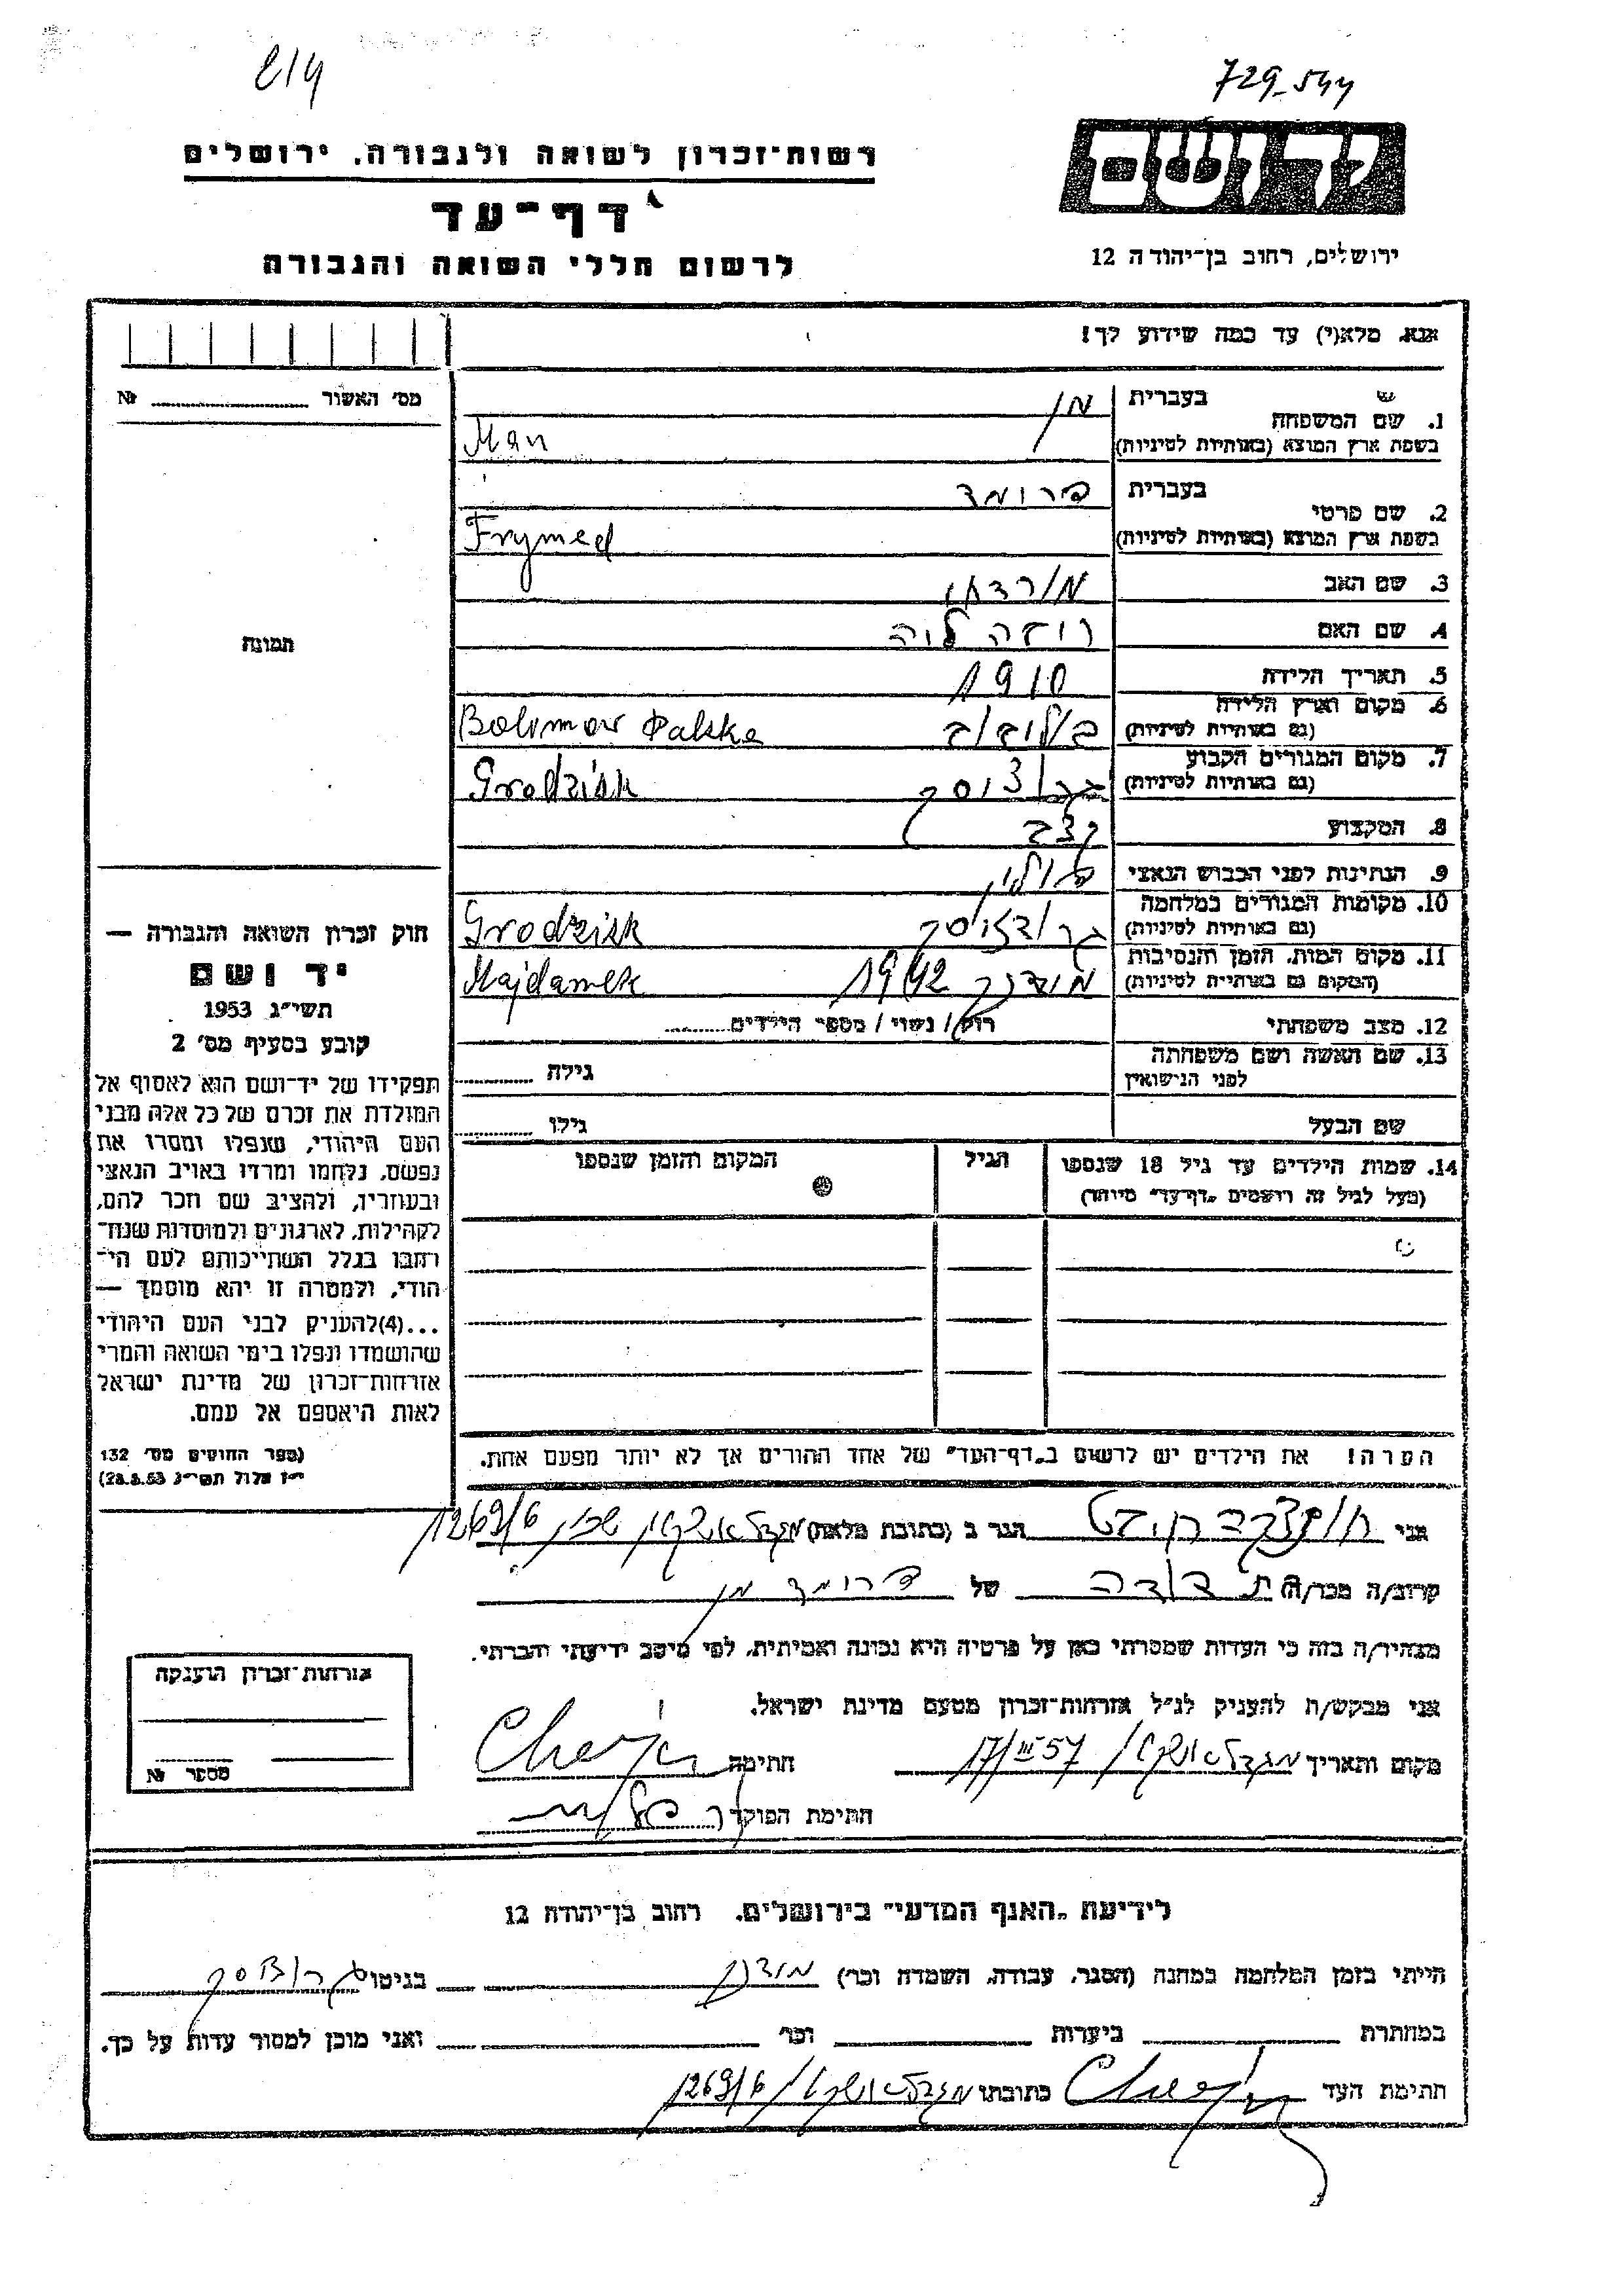 729-544
רשות־זכרון לשואה ולגבורה, ירושלים
דף־עד
לרשום חללי השואה והגבורה
ירושלים, רחוב בן־יהודה 12
אנא, מלא(י) עד כמה שידוע לך!
מס׳ האשור № 
1. שם המשפחה
בעברית מן
בשפת ארץ המוצא (באותיות לטיניות) Man
2. שם פרטי
בעברית פרומד
בשפת ארץ המוצא (באותיות לטיניות) Frymed
3. שם האב מורדחי
4. שם האם רוזה לוה
5. תאריך הלידה 1910
6. מקום וארץ הלידה
(גם באותיות לטיניות) Bolimow Polska
7. מקום המגורים הקבוע
(גם באותיות לטיניות) Grodzisk
8. המקצוע קצב
9. הנתינות לפני הכבוש הנאצי פולין
10. מקומות המגורים במלחמה
(גם באותיות לטיניות) גרודזיסק Grodzisk
11. מקום המות, הזמן והנסיבות
(המקום גם באותיות לטיניות) מידנק 1942 Majdanek
12. מצב משפחתי רווק / נשוי / מספר הילדים
13. שם האשה ושם משפחתה
לפני הנישואין גילה
שם הבעל גילו
14. שמות הילדים עד גיל 18 שנספו
(מעל לגיל זה רושמים „דף־עד״ מיוחד)
הגיל
המקום והזמן שנספו
הערה! את הילדים יש לרשום ב„דף־העד״ של אחד ההורים אך לא יותר מפעם אחת.
תמונה
חוק זכרון השואה והגבורה —
יד ושם
תשי״ג 1953
קובע בסעיף מס׳ 2
תפקידו של יד־ושם הוא לאסוף אל
המולדת את זכרם של כל אלה מבני
העם היהודי, שנפלו ומסרו את
נפשם, נלחמו ומרדו באויב הנאצי
ובעוזריו, ולהציב שם וזכר להם,
לקהילות, לארגונים ולמוסדות שנח־
רבו בגלל השתייכותם לעם הי־
הודי, ולמטרה זו יהא מוסמך —
...(4)להעניק לבני העם היהודי
שהושמדו ונפלו בימי השואה והמרי
אזרחות־זכרון של מדינת ישראל
לאות היאספם אל עמם.
(ספר החוקים מס׳ 132
י״ז אלול תשי״ג 28.8.53)
אני הגר ב (כתובת מלאה) מגדל אשקלון שכון 1269/6
קרוב/ה מכר/ה דודה של פרומד מן
מצהיר/ה בזה כי העדות שמסרתי כאן על פרטיה היא נכונה ואמיתית, לפי מיטב ידיעתי והכרתי.
אני מבקש/ת להעניק לנ״ל אזרחות־זכרון מטעם מדינת ישראל.
מקום ותאריך מגדל אשקלון 17/III 57 חתימה
חתימת הפוקד
אזרחות־זכרון הוענקה
מספר №
לידיעת „האגף המדעי״ בירושלים, רחוב בן־יהודה 12
הייתי בזמן המלחמה במחנה (הסגר, עבודה, השמדה וכו׳) מידנק בגיטו
במחתרת ביערות וכו׳ ואני מוכן למסור עדות על כך.
חתימת העד כתובתו מגדל אשקלון 1269/6